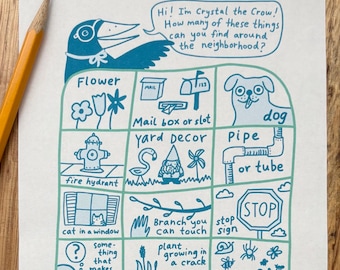 Hi! I'm Crystal the Crow!
How many of these things
can you find around
the neighborhood?
Flower
MAIL
123
Mail box or slot
dog
fire hydrant
Yard Decor
Pipe
or tube
cat in a window
Branch you
can touch
stop
sign
STOP
?
some-
thing
that
makes
plant
growing in
a crack